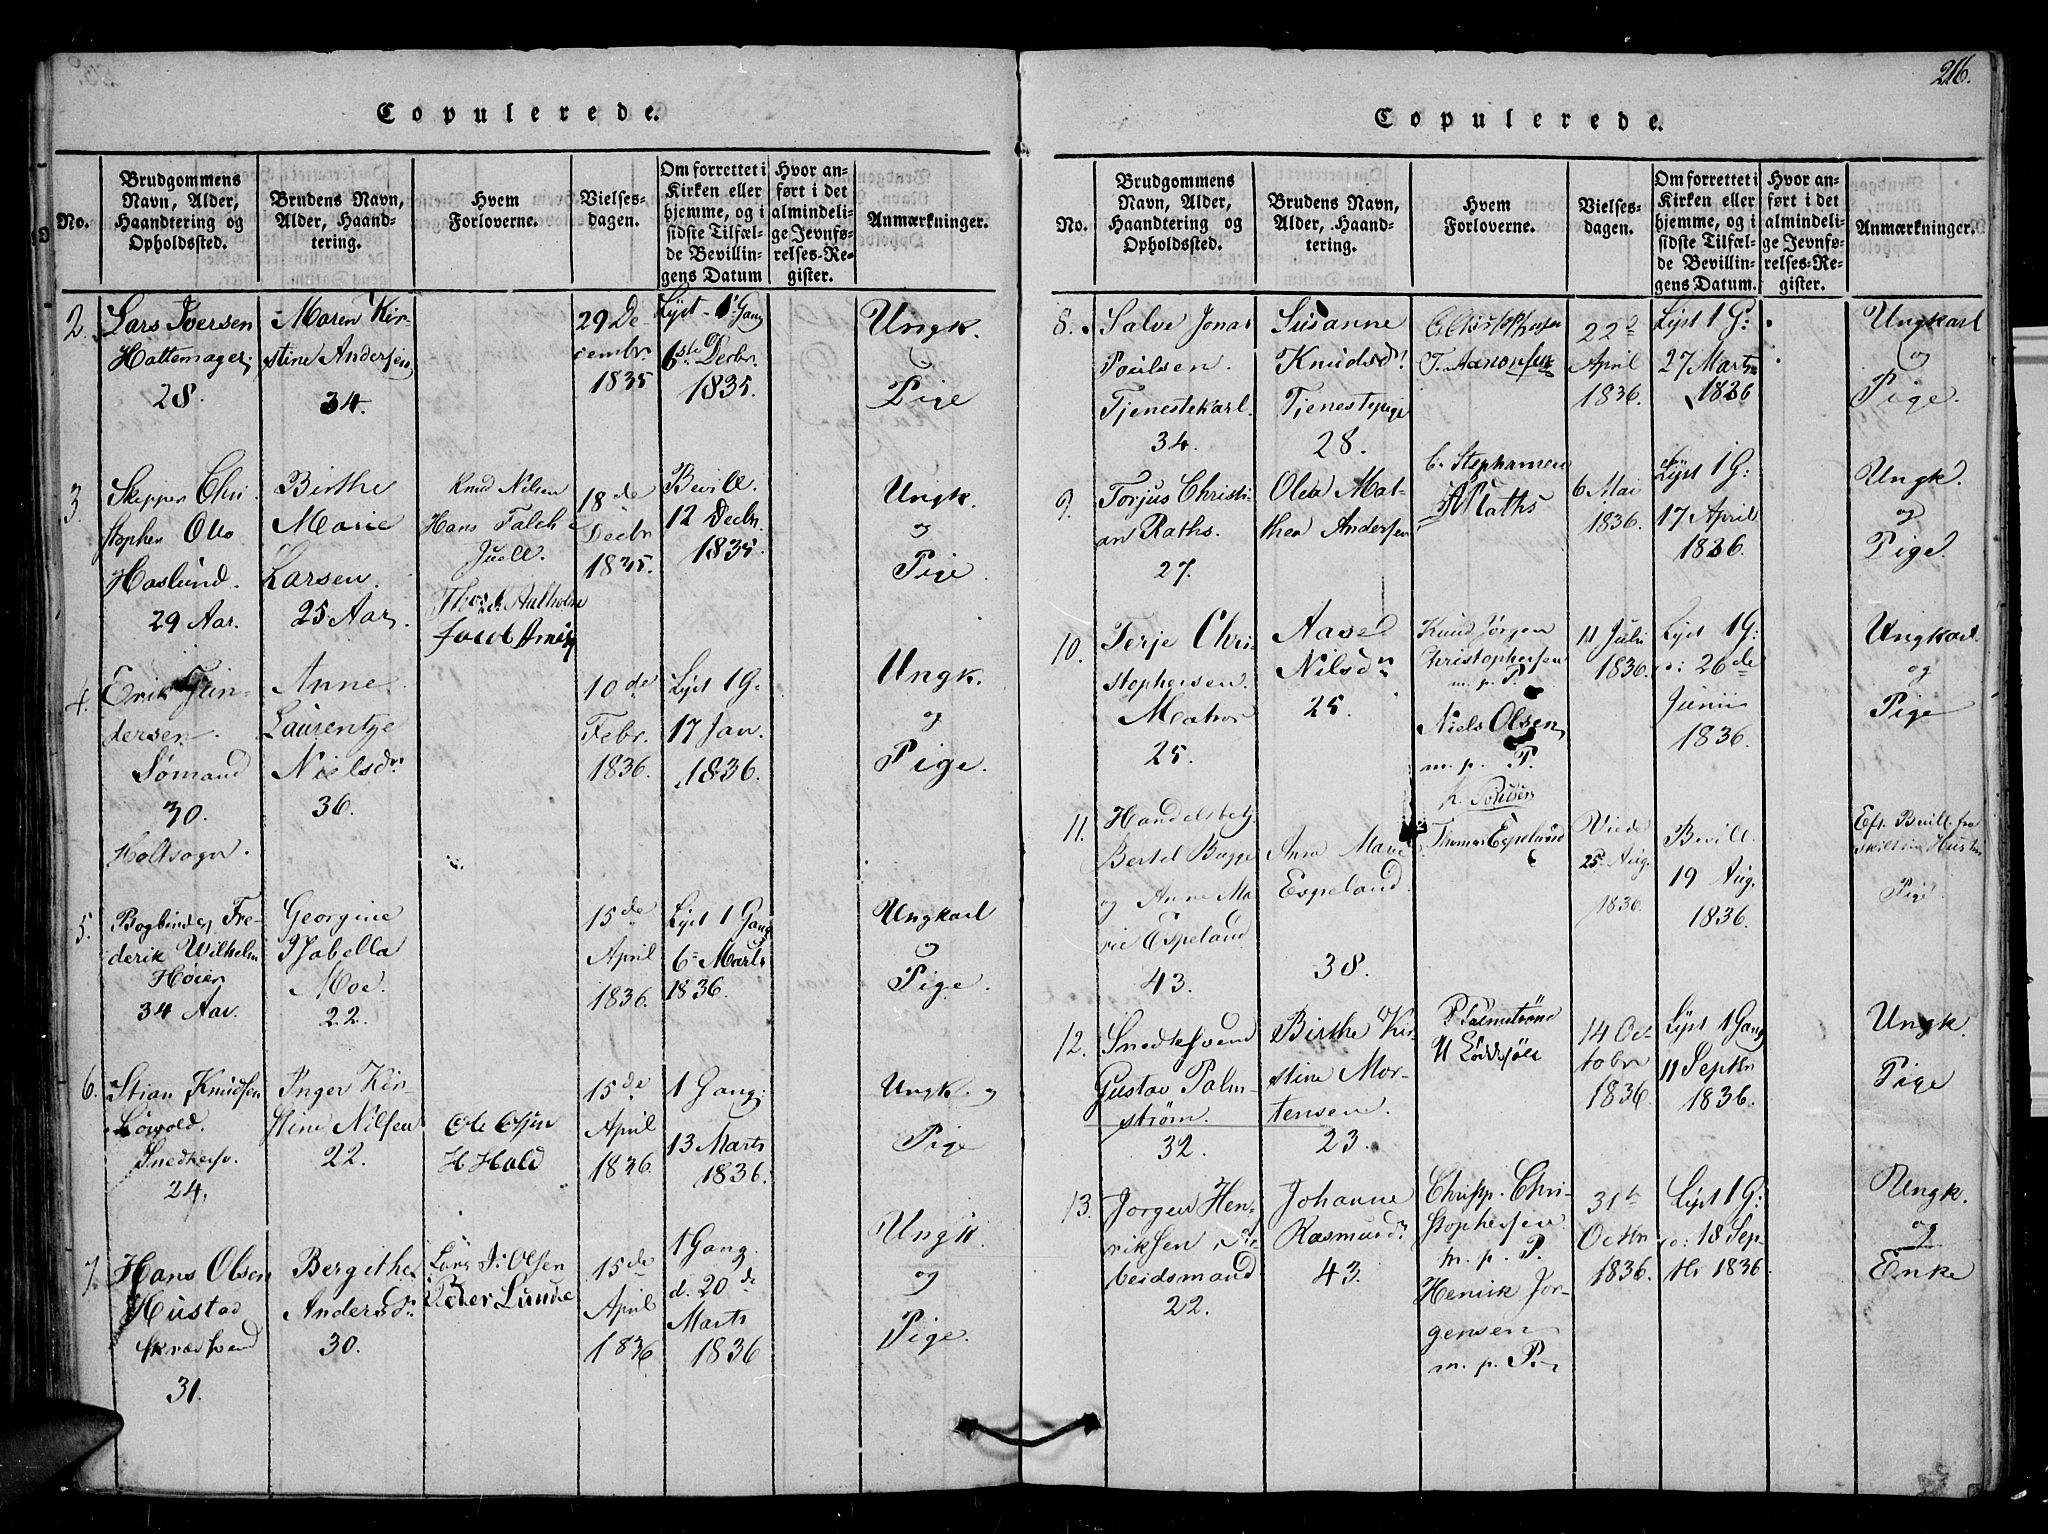 216.
Copulerede.
No.
Brudgommens
Navn, Alder,
Haandtering og
Opholdssted.
Brudens Navn,
Alder, Haand-
tering.
Hvem
Forloverne.
Vielses-
dagen.
Om forrettet i
Kirken eller
hjemme, og i
sidste Tilfæl-
de Bevillin-
gens Datum
Hvor an-
ført i det
almindeli-
ge Jevnfø-
relses-Re-
gister.
Anmærkninger.
2.
Lars Iversen
Hattemager
28.
Maren Kir-
stine Andersen
34.
29 De-
cembr.
1835
Lyst 1 Gang
6te Decbr.
1835.
Ungk.
og
Pige
3.
Skipper Chri
stopher Otto
Haslund.
29 Aar.
Birthe
Marie
Larsen.
25 Aar.
Knud Nilsen
Hans Falch
Juell.
18de
Decbr
1835.
Bevill.
12 Decbr.
1835.
Ungk.
og
Pige.
4.
Erik Gun-
dersen.
Sømand
30.
Anne
Laurentze
Nielsdr.
36.
10de
Febr.
1836.
Lyst 1 G.
17 Jan.
1836.
Ungk.
og
Pige.
5.
Bogbinder Fre-
derik Wilhelm
Høier
34 Aar.
Georgine
Isabella
Moe.
22.
15de
April
1836.
Lyst 1 Gang
6 Marts
1836.
Ungkarl
og
Pige.
6.
Stian Knudsen
Snedkersv.
24.
Inger Kir-
stine Nilsen
22.
Ole Olsen
H Hald
15de
April
1836.
1 Gang.
13 Marts
1836.
Ungk. og
Pige
7.
Hans Olsen
Hustad
31.
Bergithe
Andersdr.
30.
Lars J. Olsen
Peder Lunde
15de
April
1836
1 Gang.
d. 20de
Marts
1836
Ungk.
og
Pige.
Copulerede.
No.
Brudgommens
Navn, Alder,
Haandtering og
Opholdssted.
Brudens Navn,
Alder, Haand-
tering.
Hvem
Forloverne.
Vielses-
dagen.
Om forrettet i
Kirken eller
hjemme, og i
sidste Tilfæl-
de Bevillin-
gens Datum.
Hvor an-
ført i det
almindeli-
ge Jevnfø-
relses-Re-
gister.
Anmærkninger.
8.
Salve Jonas
Poulsen.
Tjenestekarl.
34.
Susanne
Knudsdr.
Tjenestepige
28.
T. Aanonsen
22d
April
1836.
Lyst 1 G:
27 Marts
1836
Ungkarl
og
Pige.
9.
Torjus Christi-
an Raths.
27.
Olea Mat-
thea Andersen
6 Mai
1836.
Lyst 1 G:
17 April
1836.
Ungk.
og
Pige.
10.
Terje Chri-
stophersen.
25.
Aase
Nilsdr
25.
Knud Jørgen
Christophersen
m. p. P.
Niels Olsen
m. p. P.
11 Juli
1836.
Lyst 1 G:
26de
Junii
1836.
Ungkarl
og
Pige
11.
Bertel Bugge
og Anne Ma
rie Espeland
43.
Ana Marie
Espeland.
38.
Thomas Espelund
Viede
25 Aug.
1836.
Bevill.
19 Aug.
1836.
Pige
12.
Gustav Palm-
strøm.
32.
Birthe Kir-
stine Mor-
tensen.
23.
P Palmstrøm
14 Oc-
tober
1836
Lyst 1 Gang
11 Septbr
1836.
Ungk.
Pige
13.
Jørgen Hen-
riksen, Ar-
beidsmand
22.
Johanne
Rasmusdr
43.
Christp. Chri-
stophersen
m. p. P.
Henrik Jør-
gensen
m. p. P.
31te
Octbr
1836.
Lyst 1 G:
18 Sep-
tbr 1836
Ungk.
og
Enke